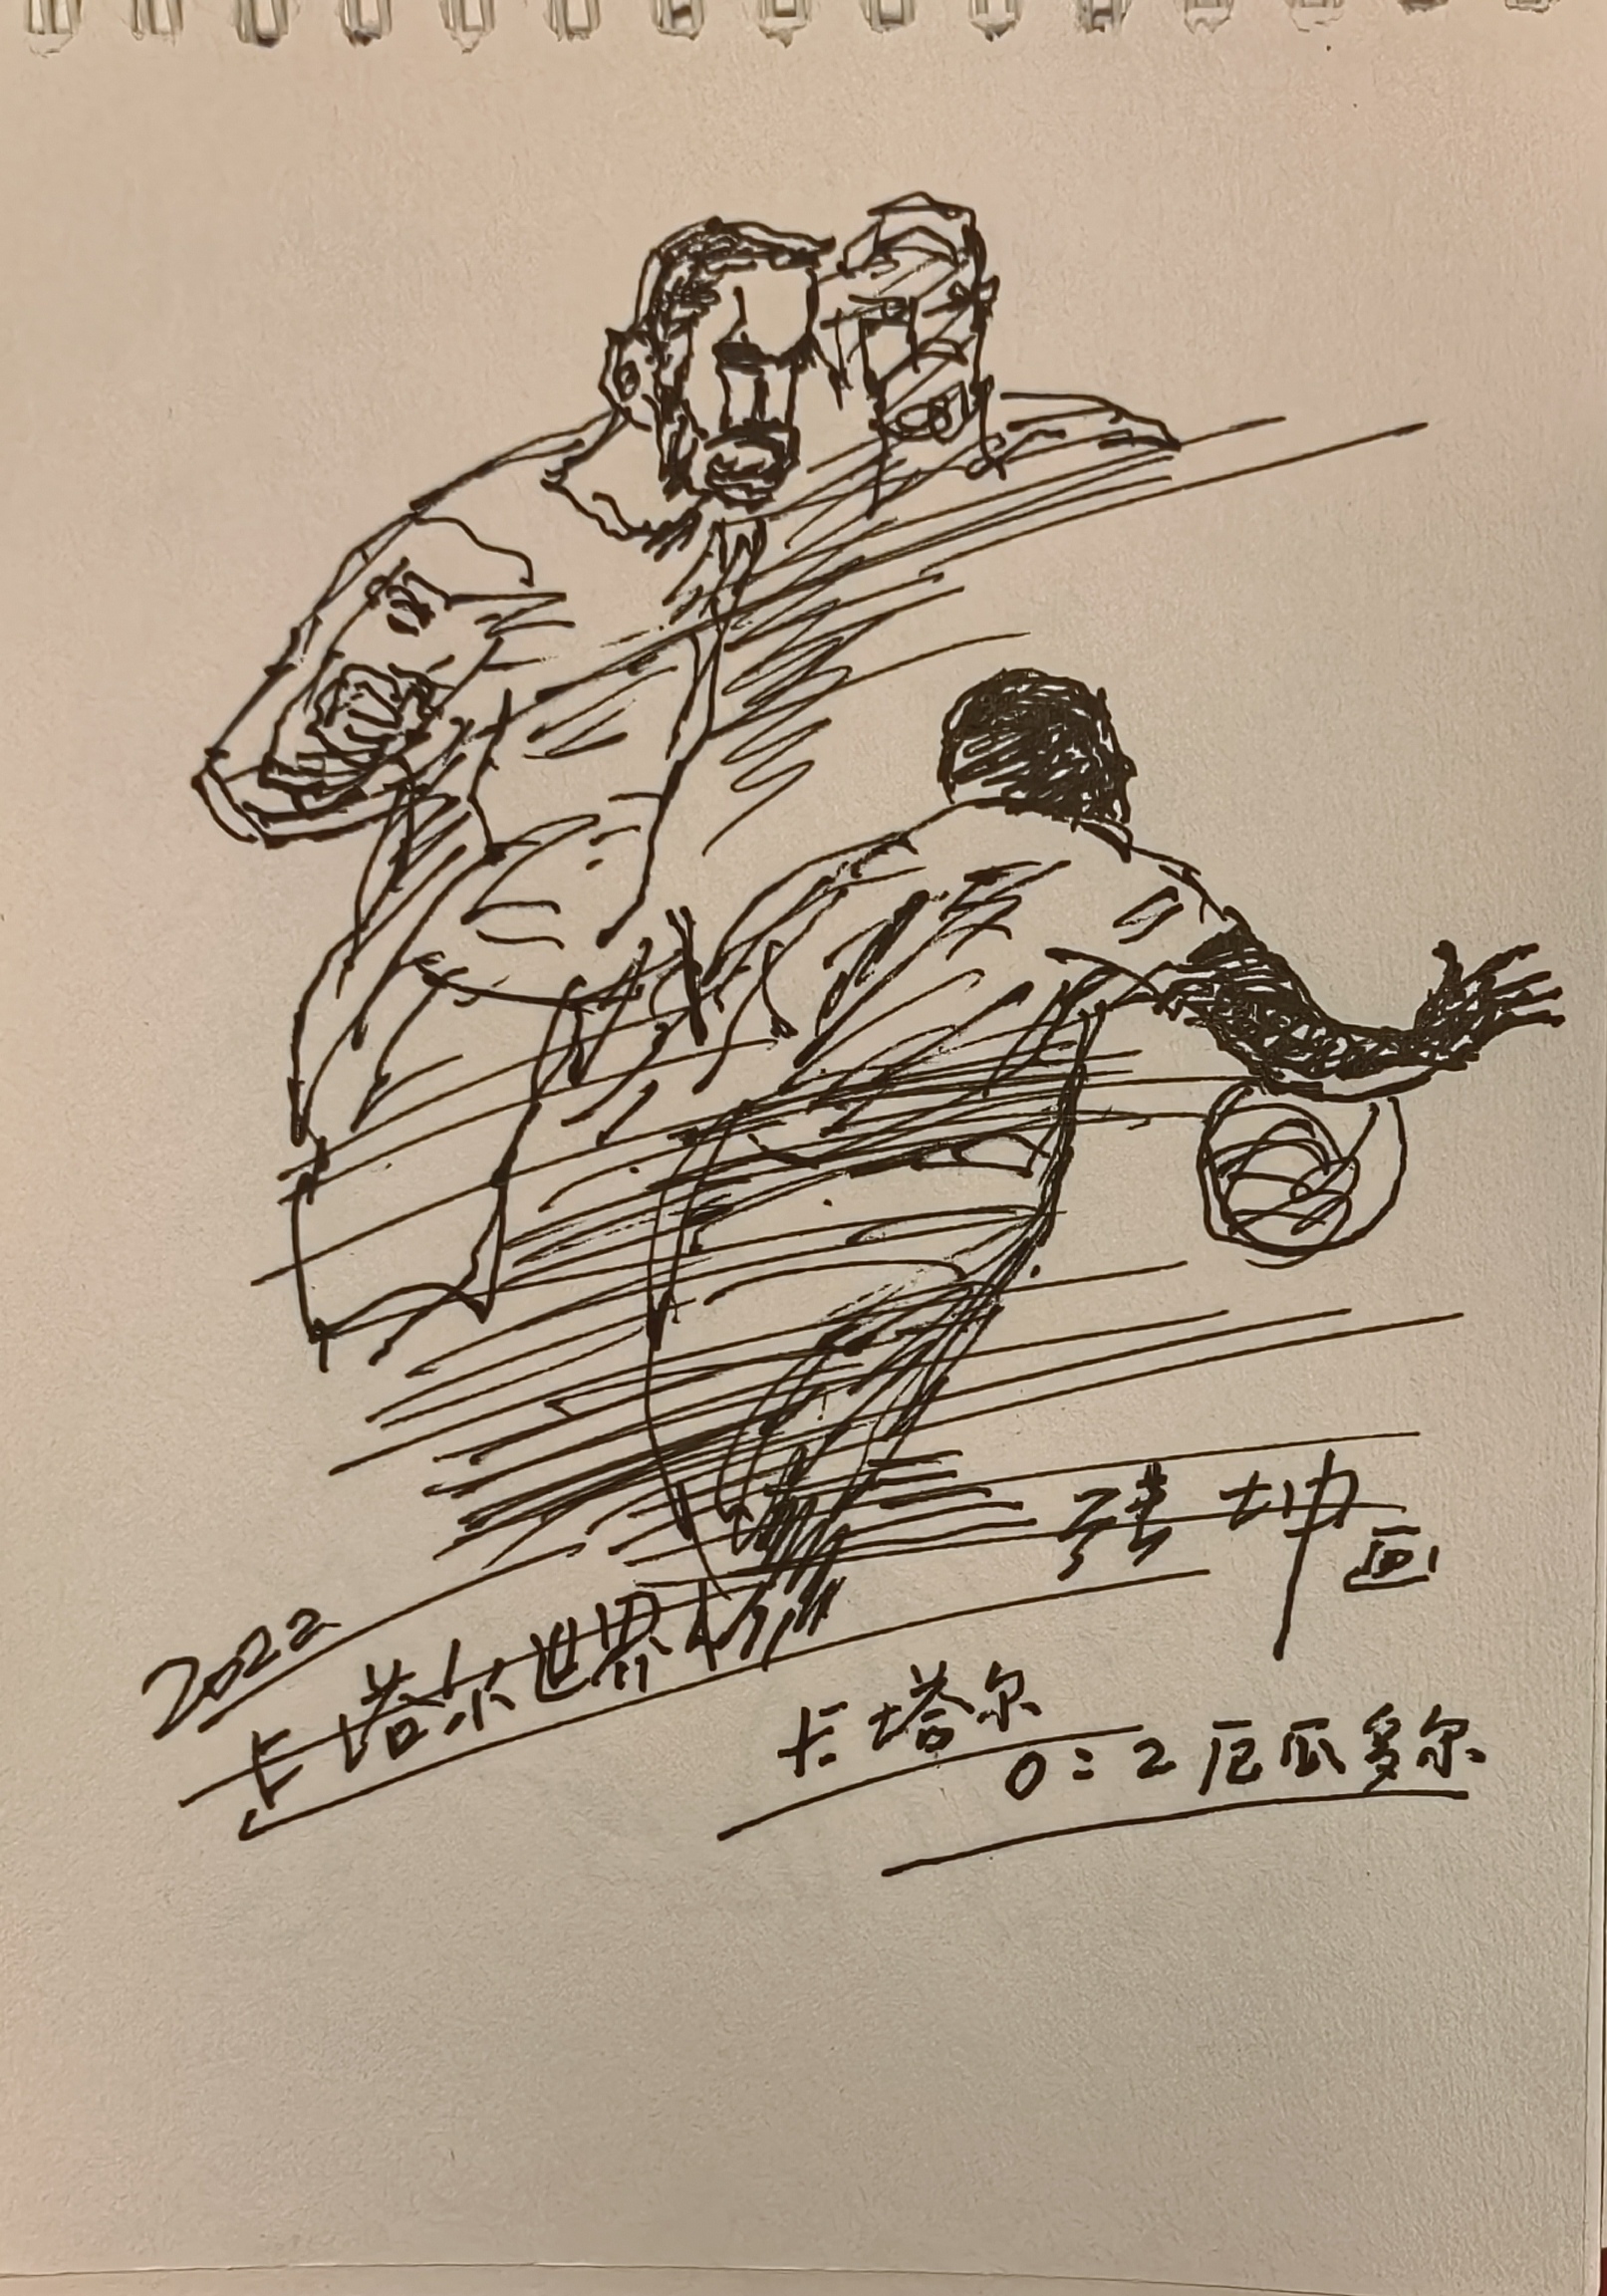 张坤
画
2022
卡塔尔世界杯
卡塔尔
0:2 厄瓜多尔